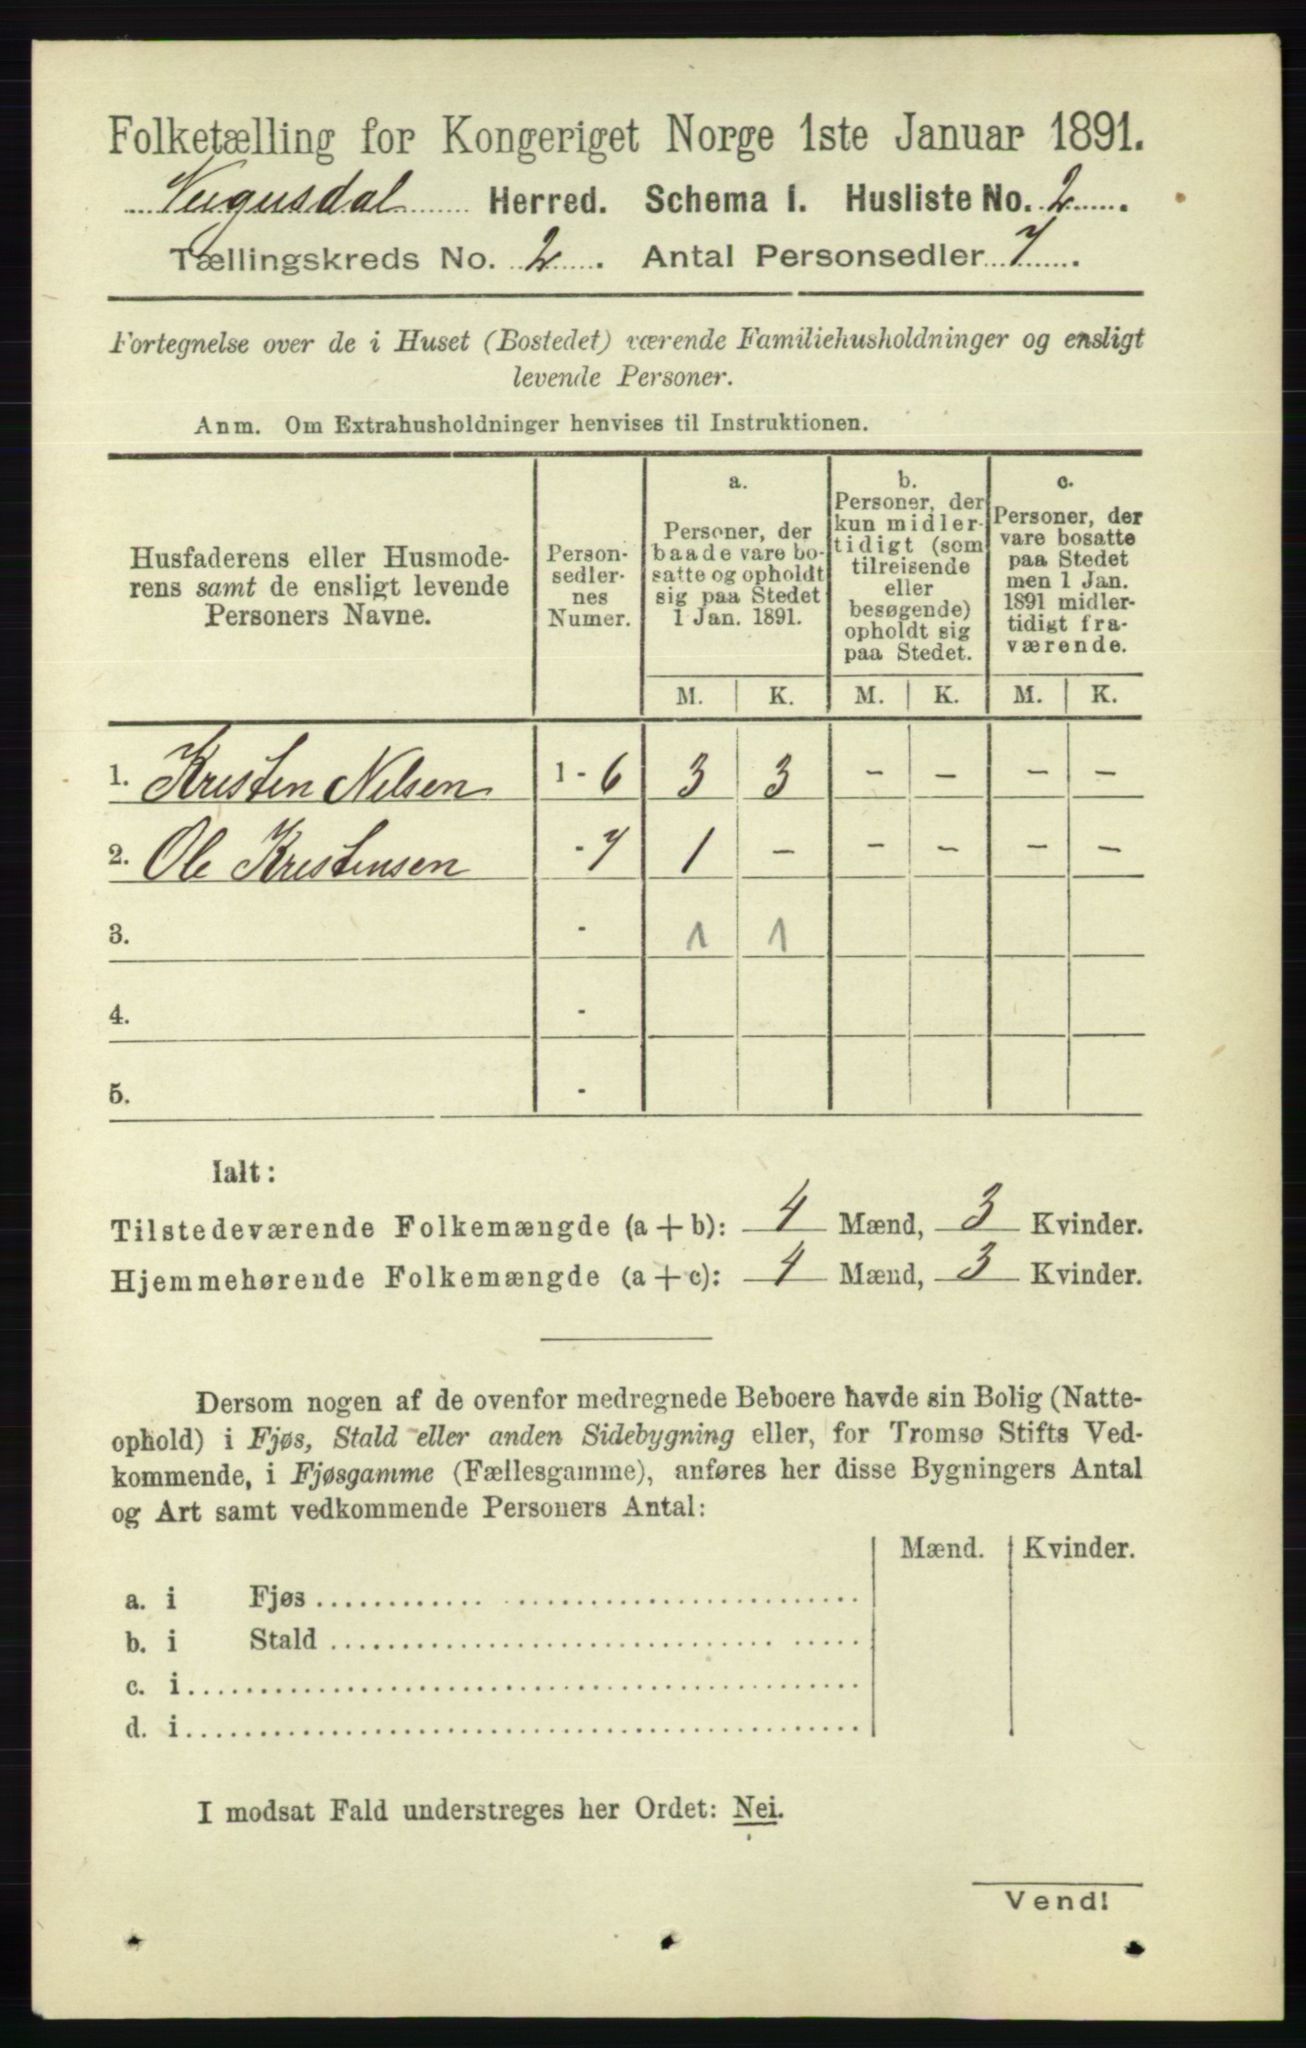 Folketælling for Kongeriget Norge 1ste Januar 1891.
Vegusdal Herred. Schema I. Husliste No. 2
Tællingskreds No. 2. Antal Personsedler 7.
Fortegnelse over de i Huset (Bostedet) værende Familiehusholdninger og ensligt
levende Personer.
Anm. Om Extrahusholdninger henvises til Instruktionen.
Husfaderens eller Husmode-
rens samt de ensligt levende
Personers Navne.
Person-
sedler-
nes
Numer.
a.
Personer, der
baade vare bo-
satte og opholdt
sig paa Stedet
1 Jan. 1891.
b.
Personer, der
kun midler-
tidigt (som
tilreisende
eller
besøgende)
opholdt sig
paa Stedet.
c.
Personer, der
vare bosatte
paa Stedet
men 1 Jan.
1891 midler-
tidigt fra-
værende.
M. K. M. K. M. K.
1. Kristen Nilsen 1 - 6 3 3 - - - -
2. Ole Kristensen - 7 1 - - - - -
3. - 1 1
4. -
5. -
Ialt:
Tilstedeværende Folkemængde (a + b): 4 Mænd, 3 Kvinder.
Hjemmehørende Folkemængde (a + c): 4 Mænd, 3 Kvinder.
Dersom nogen af de ovenfor medregnede Beboere havde sin Bolig (Natte-
ophold) i Fjøs, Stald eller anden Sidebygning eller, for Tromsø Stifts Ved-
kommende, i Fjøsgamme (Fællesgamme), anføres her disse Bygningers Antal
og Art samt vedkommende Personers Antal:
Mænd. Kvinder.
a. i Fjøs
b. i Stald
c. i
d. i
I modsat Fald understreges her Ordet: Nei.
Vend!